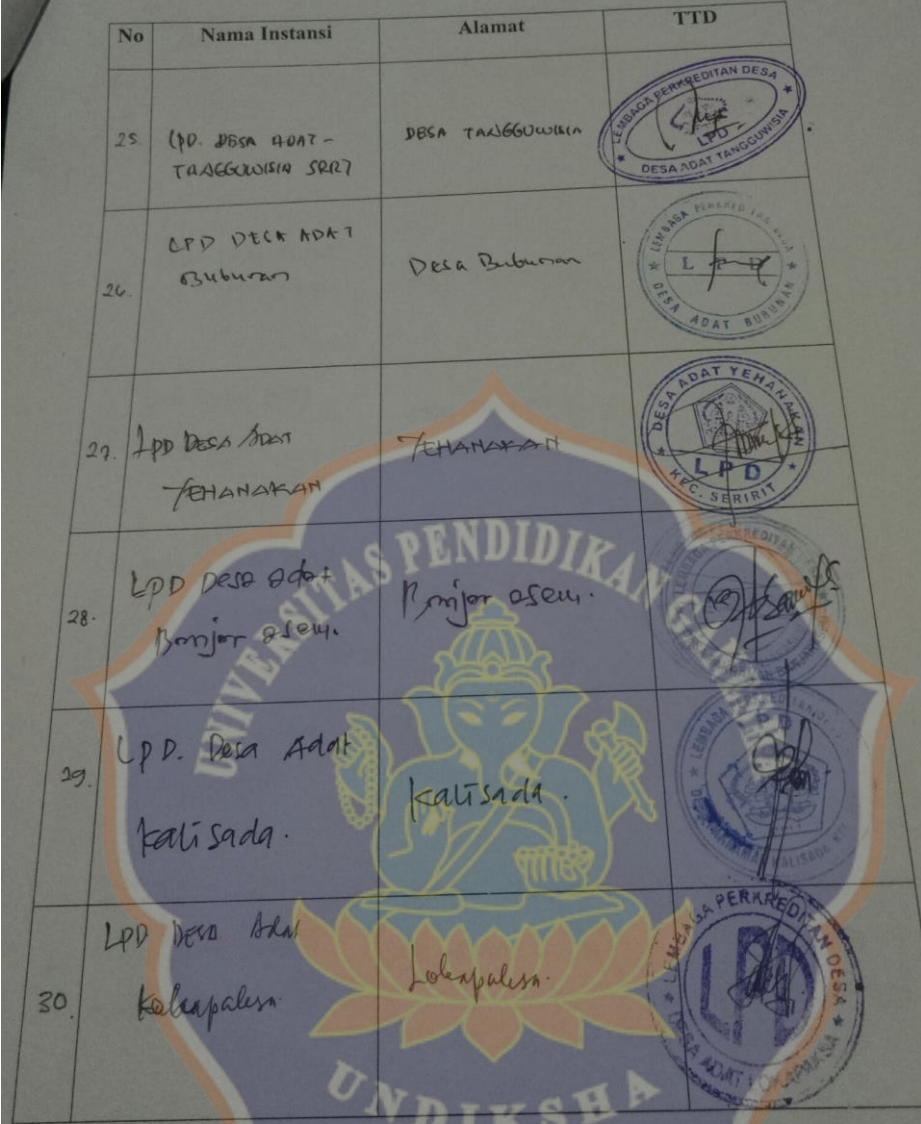 No Nama Instansi Alamat TTD
25. LPD. DESA ADAT - DESA TANGGUWISIA
TANGGUWISIA SRRT
LEMBAGA PERKREDITAN DESA
LPD
DESA ADAT TANGGUWISIA
26. LPD DESA ADAT Desa Bubunan
Bubunan
LEMBAGA PERKREDITAN DESA
L P D
DESA ADAT BUBUNAN
27. LPD DESA ADAT YEHANAKAN
YEHANAKAN
DESA ADAT YEHANAKAN
LPD
KEC. SERIRIT
28. LPD Desa adat Banjar asem.
Banjar asem.
LEMBAGA PERKREDITAN
29. LPD. Desa Adat Kalisada.
Kalisada.
LEMBAGA
LPD
KALISADA
30. LPD Desa Adat Lokapaksa.
Lokapaksa
LEMBAGA PERKREDITAN DESA
LPD
DESA ADAT LOKAPAKSA
UNIVERSITAS PENDIDIKAN GANESHA
UNDIKSHA